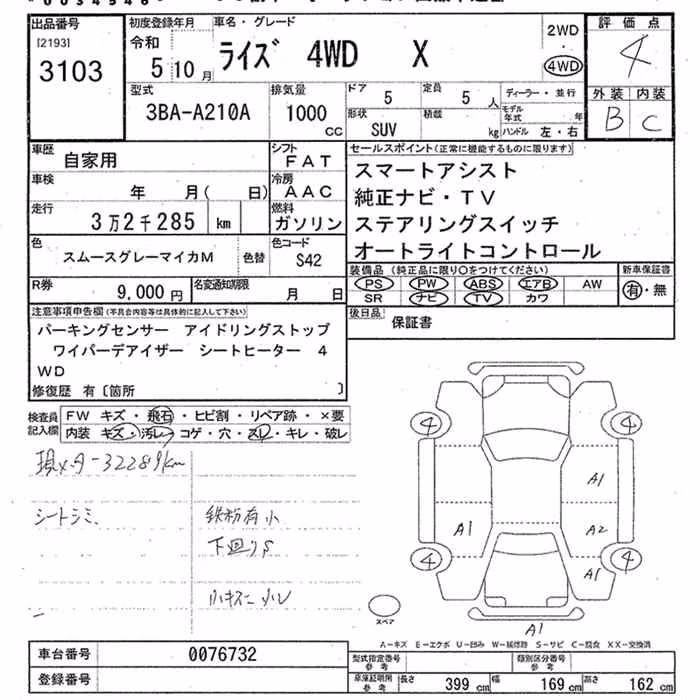 出品番号
[2193]
3103
初度登録年月
令和
5 10 月
車名・グレード
ライズ 4WD X
2WD
4WD
評価点
4
外装 内装
B C
型式
3BA-A210A
排気量
1000
CC
ドア
5
定員
5 人
形状
SUV
積載
kg
ディーラー・並行
モデル年式 年
ハンドル 左・右
車歴
自家用
シフト
FAT
車検
年 月( 日)
冷房
AAC
走行
3万2千285 km
燃料
ガソリン
色
スムースグレーマイカM
色替
色コード
S42
R券
9,000 円
名変通知期限
月 日
セールスポイント(正常に機能するものに限ります)
スマートアシスト
純正ナビ・TV
ステアリングスイッチ
オートライトコントロール
装備品(純正品に限り○をつけてください)
PS PW ABS エアB AW
SR ナビ TV カワ
新車保証書
有・無
後日品
保証書
注意事項申告欄(不具合内容等は具体的に記入して下さい)
パーキングセンサー アイドリングストップ
ワイパーデアイザー シートヒーター 4
WD
修復歴 有〔箇所 〕
検査員
記入欄
FW キズ・飛石・ヒビ割・リペア跡・×要
内装 キズ・汚レ・コゲ・穴・スレ・キレ・破レ
現メーター32289km
シートシミ
鉄粉有 小
下廻りS
小キズ 小U
4
4
4
4
A1
A1
A2
A1
A1
スペア
A-キズ E-エクボ U-凹み W-補修跡 S-サビ C-腐食 XX-交換済
車台番号
0076732
登録番号
型式指定番号
参考
類別区分番号
参考
車庫証明用
参考
長さ 399 cm 幅 169 cm 高さ 162 cm